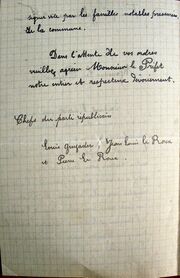 signée par les familles notables
de la commune.
Dans l'attente de vos ordres
veuillez agréer Monsieur le Préfet
notre entier et respectueux dévouement.
Chefs du parti républicain
Louis Jean Louis le Roux
et Pierre le Roux